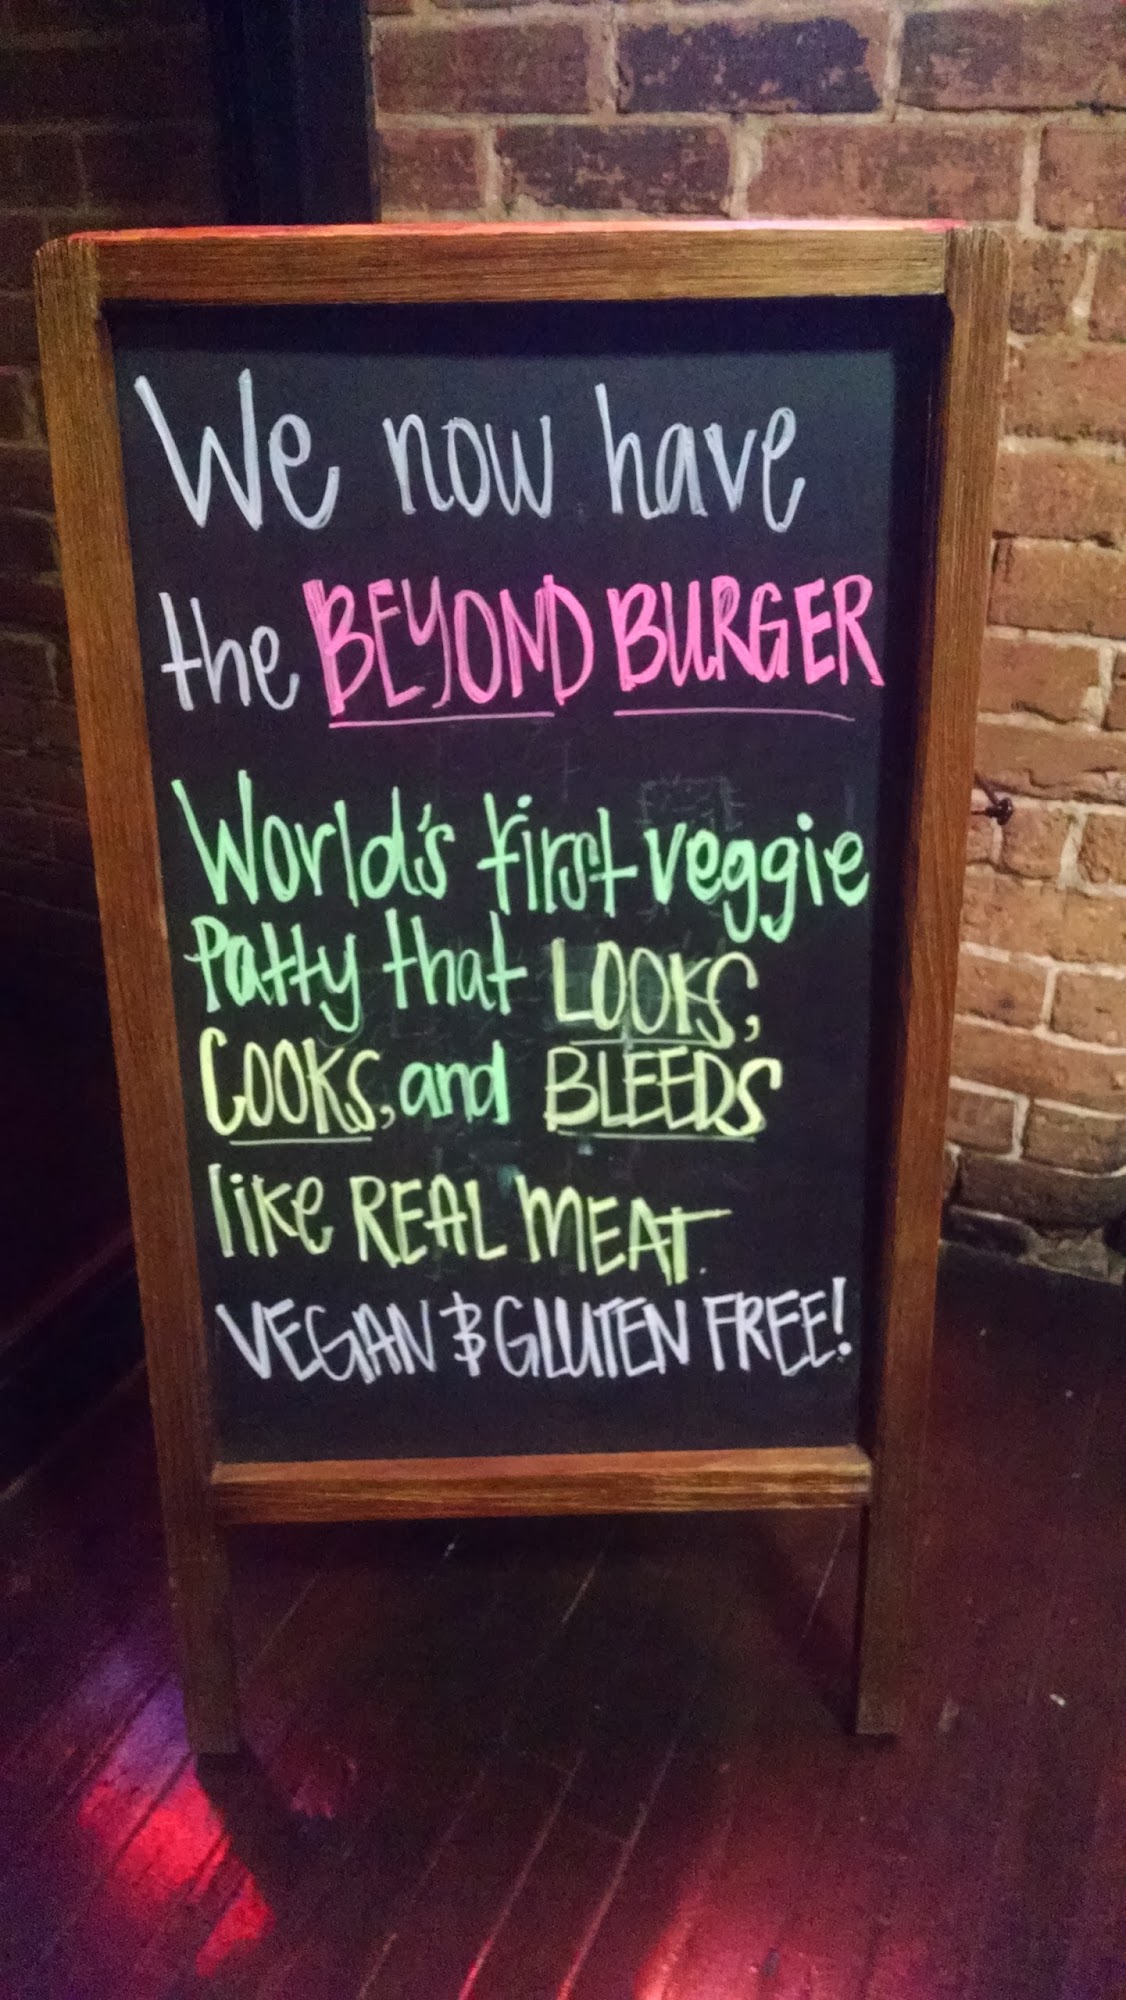 We now have
the BEYOND BURGER
World's first veggie
Patty that LOOKS,
COOKS, and BLEEDS
like REAL MEAT.
VEGAN & GLUTEN FREE!